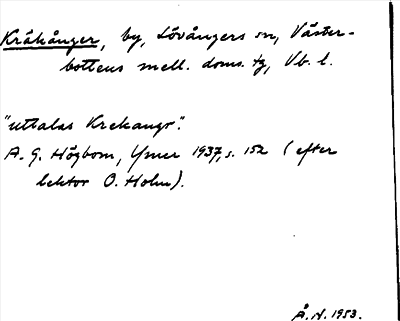 Kråkånger, by, Lövångers sn, Väster-
bottens mell. doms. tg, Vb. l.
"uttalas Krekangr".
A. G. Högbom, Ymer 1937, s. 152 (efter
lektor O. Holm).
Å. N. 1953.